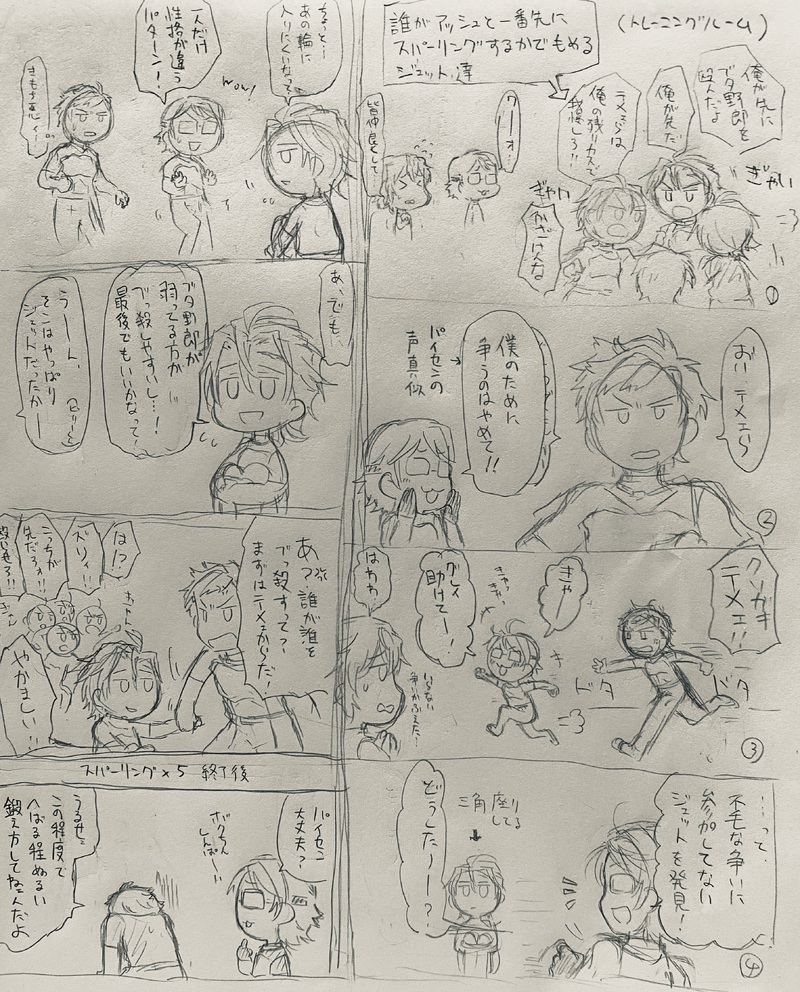 (トレーニングルーム)
誰がアッシュと一番先に
スパーリングするかでもめる
ジェット達
俺が先に
ブタ野郎を
殺んだよ
俺が先だ
テメェらは
俺の残りカスで
我慢しろ!!
ぎゃい
ぎゃい
ふざけんな
ワーオ!
皆仲良くして
①
おい、テメェら
僕のために
争うのはやめて!!
パイセンの
声真似
②
クソガキ
テメェ!!
ドタ
ドタ
きゃー
きゃっ
きゃっ
グレイ
助けてー!
はわわ
いらない
争いがふえた…
③
…って、
不毛な争いに
参加してない
ジェットを発見!
三角座り
してる
どうしたのー?
④
ちょっと…
あの輪に
入りにくいなって
wow!
一人だけ
性格が違う
パターン!
きもち悪ィ…
あ、でも、
ブタ野郎が
弱ってる方が
ブッ殺しやすいし…!
最後でもいいかなって
うーん、
そこはやっぱり
ジェットだったかー
あ?誰が誰を
ブッ殺すって?
まずはテメェからだ!
は!?
ズリィ!!
こっちが
先だろ!!
やかましい!!
スパーリング×5 終了後
パイセン
大丈夫?
ボクちん
しんぱーい
うるせェ
この程度で
へばる程ぬるい
鍛え方してねェんだよ